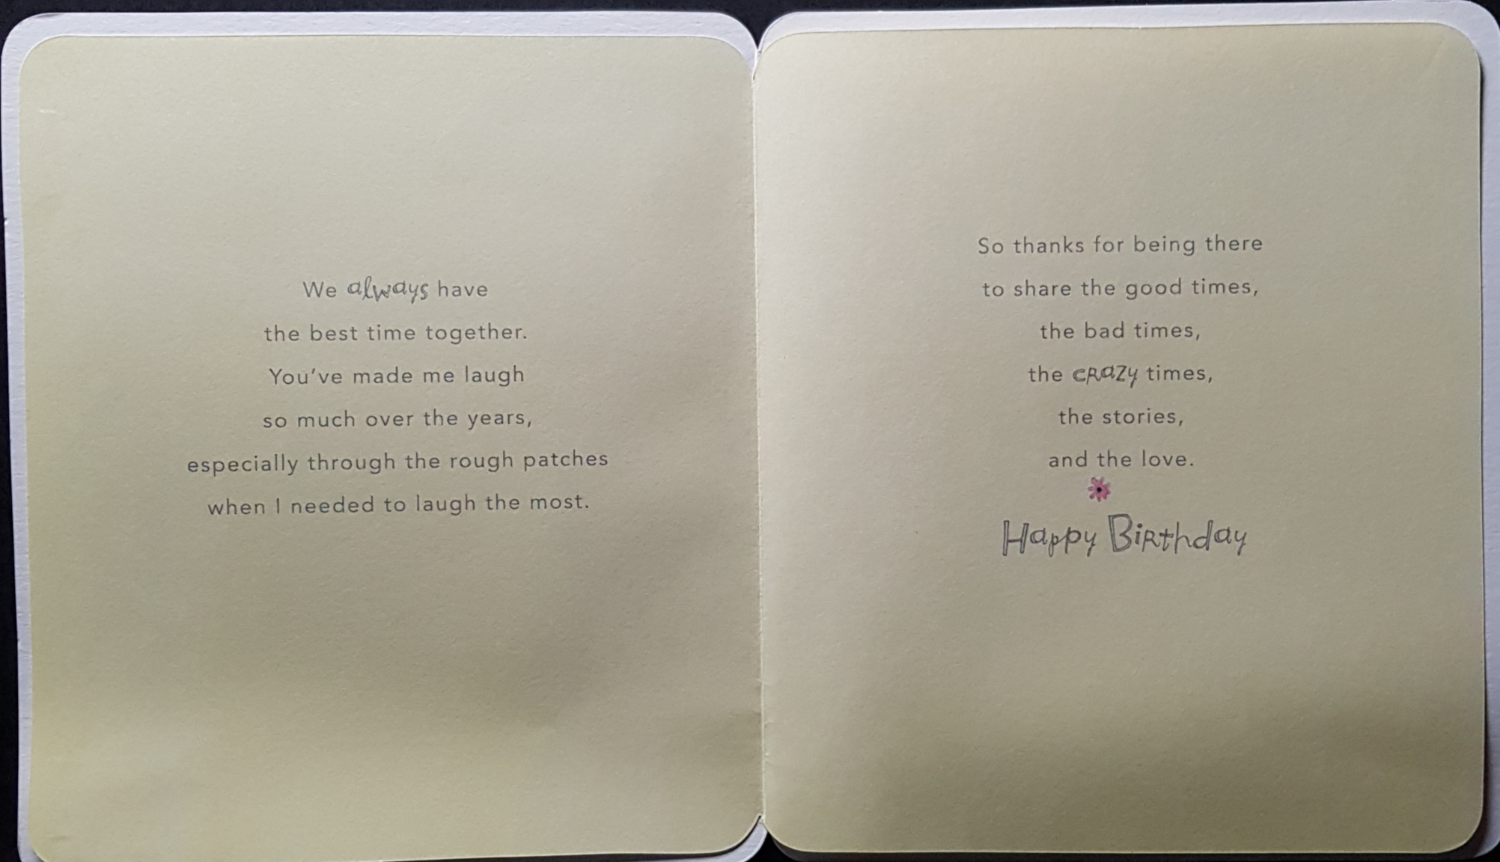 We always have
the best time together.
You've made me laugh
so much over the years,
especially through the rough patches
when I needed to laugh the most.
So thanks for being there
to share the good times,
the bad times,
the cRazy times,
the stories,
and the love.
Happy BiRthday